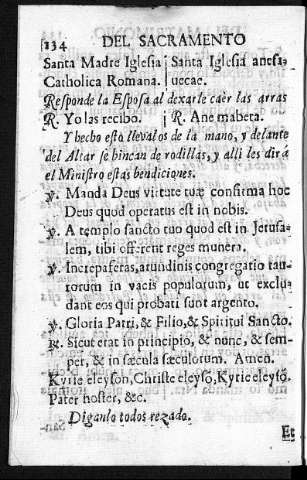 134 DEL SACRAMENTO
Santa Madre Iglesia | Santa Iglesia anesa-
Catholica Romana. | ueeae.
Responde la Esposa al dexarle caèr las arras
R. Yo las recibo. | R. Ane mabeta.
Y hecho esto llevalos de la mano, y delante
del Altar se hincan de rodillas, y alli les dirá
el Ministro estas bendiciones.
℣. Manda Deus virtute tuæ confirma hoc
Deus quod operatus est in nobis.
℣. A templo sancto tuo quod est in Jerusa-
lem, tibi offerent reges munera.
℣. Increpaferas, arundinis congregatio tau-
rorum in vacis populorum, ut exclu
dant eos qui probati sunt argento.
℣. Gloria Patri, & Filio, & Spiritui Sancto.
R. Sicut erat in principio, & nunc, & sem-
per, & in sæcula sæculorum. Amen.
Kyrie eleyson, Christe eleysõ, Kyrie eleysõ.
Pater noster, &c.
Diganlo todos rezado.
Et